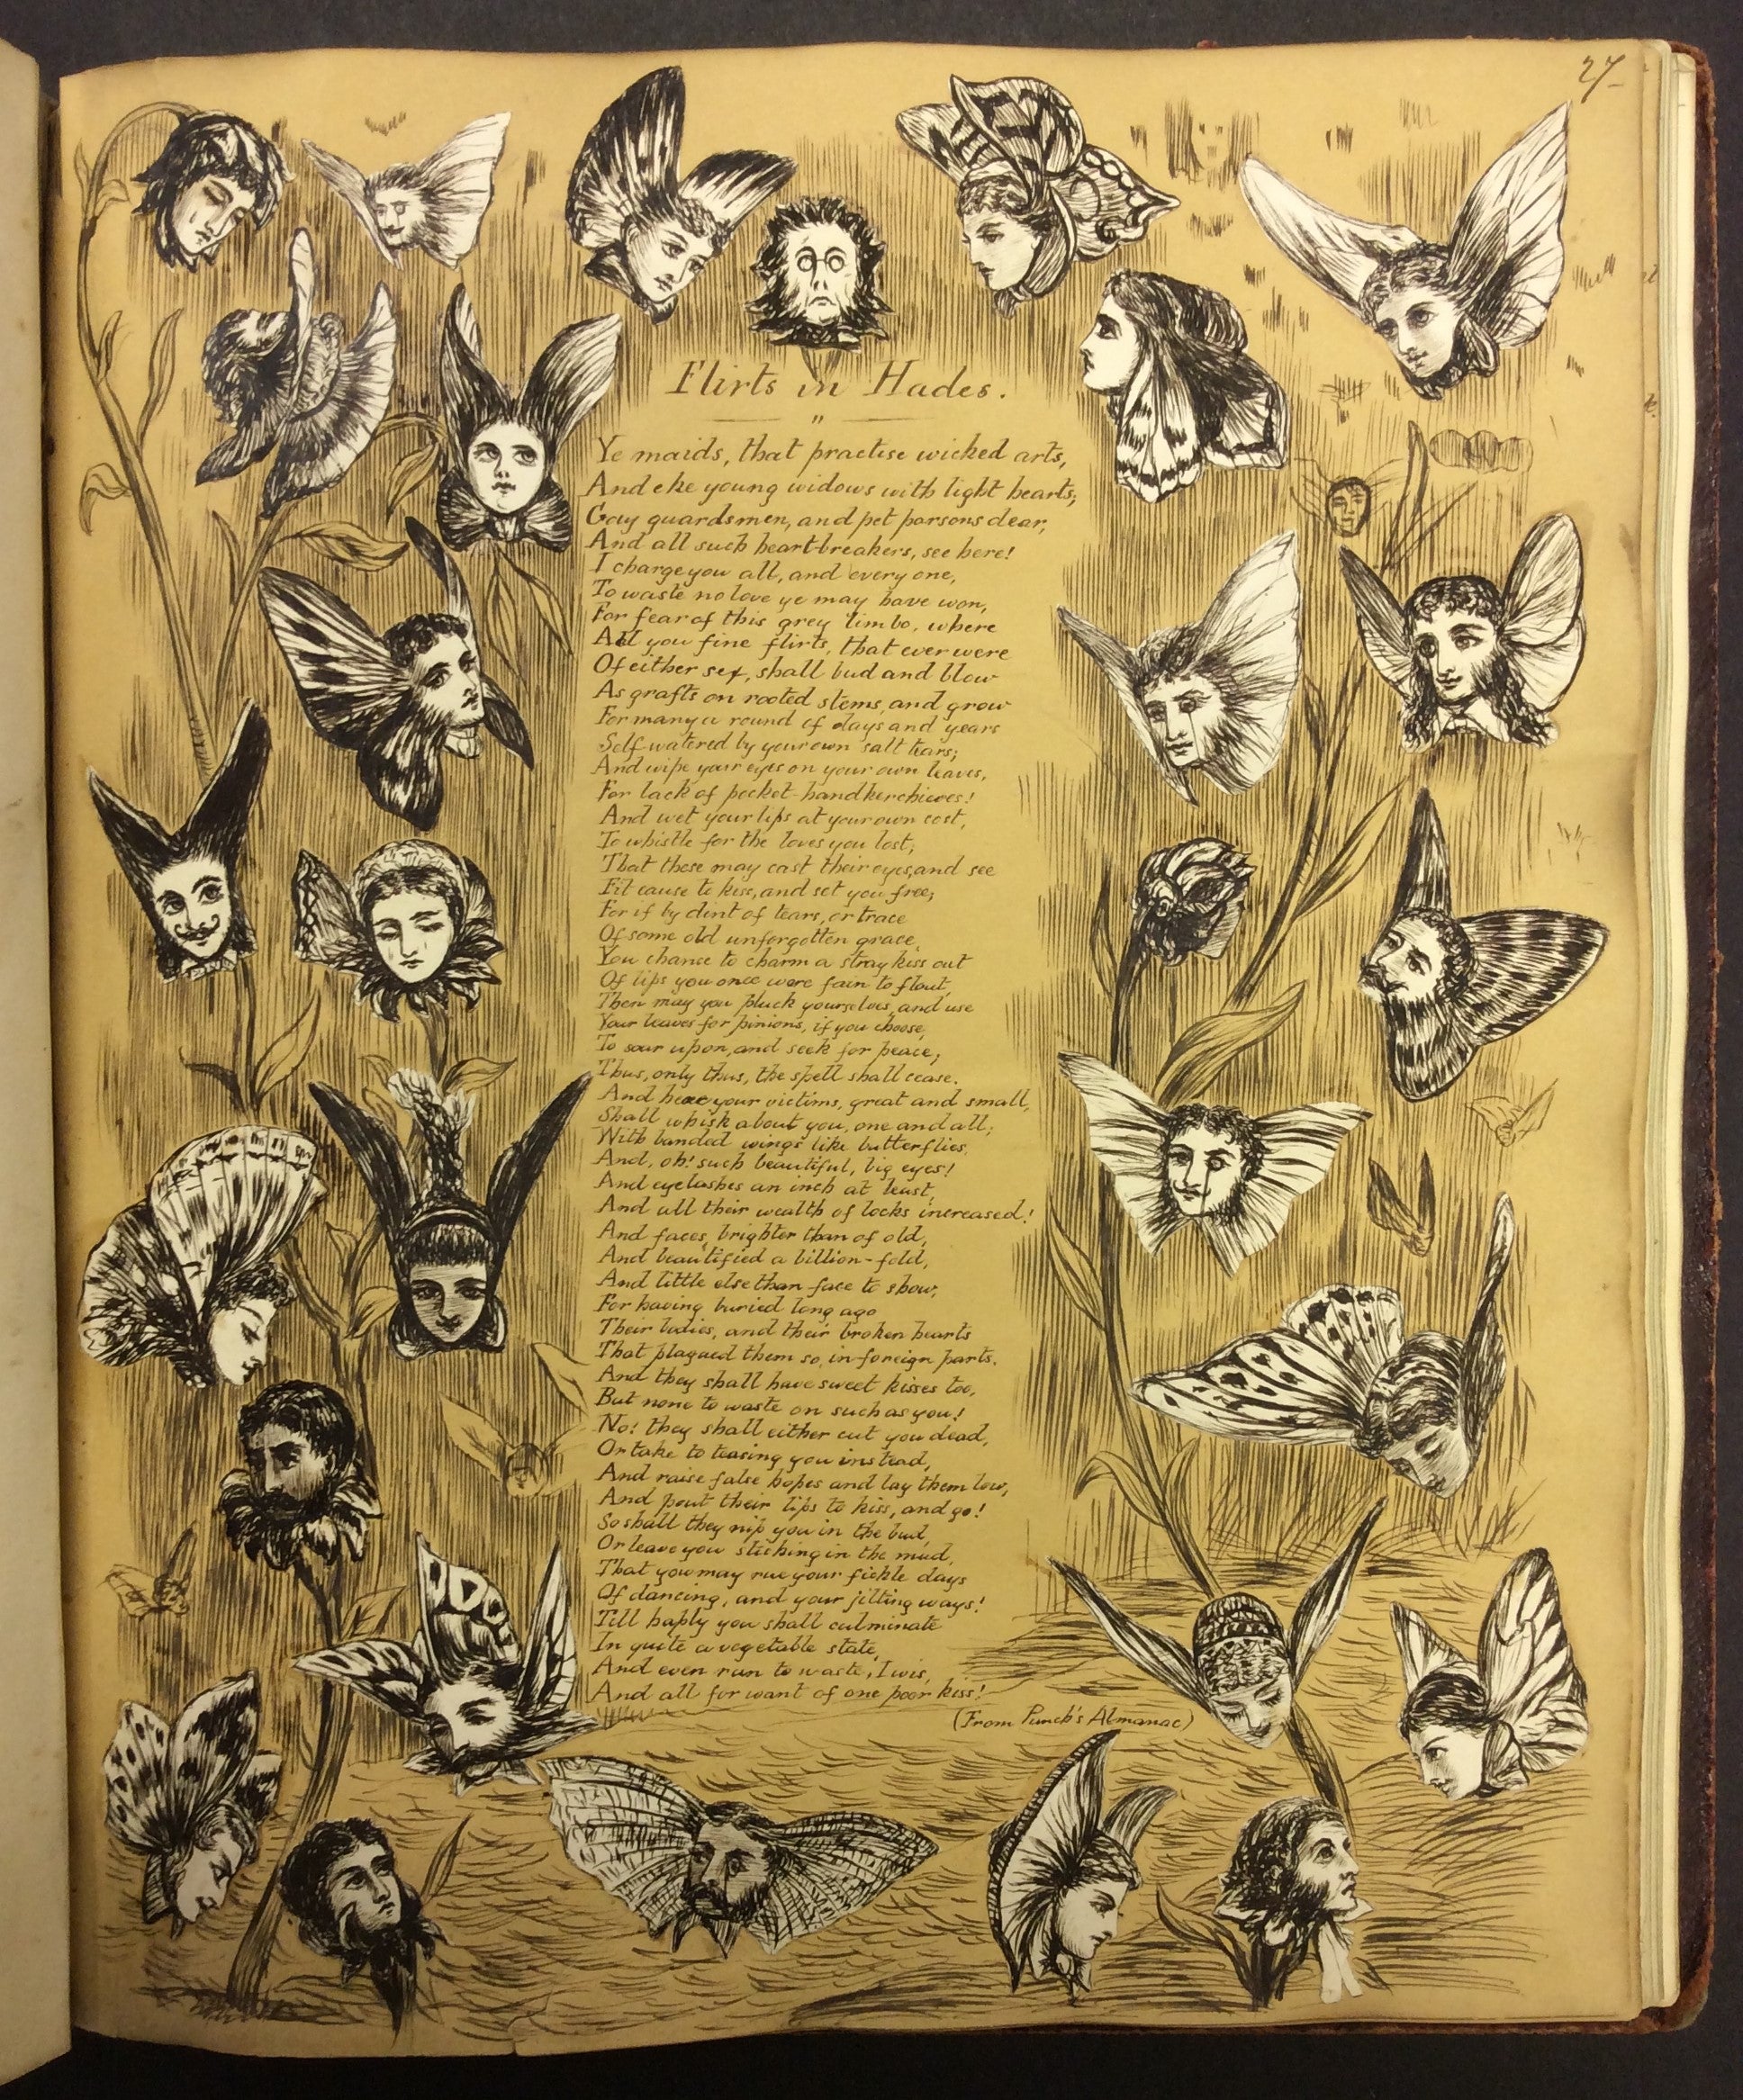 27
Flirts in Hades.
"
Ye maids, that practise wicked arts,
And eke young widows with light hearts;
Gay guardsmen, and pet parsons dear,
And all such heart-breakers, see here!
I charge you all, and every one,
To waste no love ye may have won,
For fear of this grey limbo, where
All you fine flirts, that ever were
Of either sex, shall bud and blow
As grafts on rooted stems, and grow
For many a round of days and years
Self-watered by your own salt tears;
And wipe your eyes on your own leaves,
For lack of pocket-handkerchieves!
And wet your lips at your own cost,
To whistle for the loves you lost;
That these may cast their eyes, and see
Fit cause to kiss, and set you free;
For if by dint of tears, or trace
Of some old unforgotten grace,
You chance to charm a stray kiss out
Of lips you once were fain to flout,
Then may you pluck yourselves, and use
Your leaves for pinions, if you choose,
To soar upon, and seek for peace;
Thus, only thus, the spell shall cease.
And here your victims, great and small,
Shall whisk about you, one and all;
With banded wings like butterflies,
And, oh! such beautiful, big eyes!
And eyelashes an inch at least,
And all their wealth of locks increased!
And faces, brighter than of old,
And beautified a billion-fold,
And little else than face to show,
For having buried long ago
Their bodies, and their broken hearts
That plagued them so, in foreign parts.
And they shall have sweet kisses too,
But none to waste on such as you!
No! they shall either cut you dead,
Or take to teasing you instead,
And raise false hopes and lay them low,
And pout their lips to kiss, and go!
So shall they nip you in the bud,
Or leave you sticking in the mud,
That you may rue your fickle days
Of dancing, and your jilting ways!
Till haply you shall culminate
In quite a vegetable state,
And even run to waste, I wis,
And all for want of one poor kiss!
(From Punch's Almanac)